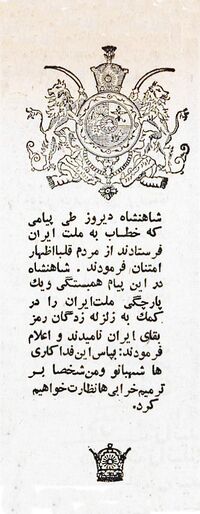 شاهنشاه دیروز طی پیامی
که خطاب به ملت ایران
فرستادند از مردم قلبا اظهار
امتنان فرمودند . شاهنشاه
در این پیام همبستگی ویک
پارچگی ملت ایران را در
کمک به زلزله زدگان رمز
بقای ایران نامیدند و اعلام
فرمودند: بپاس این فداکاری
ها شهبانو ومن شخصا بر
ترمیم خرابی ها نظارت خواهیم
کرد.